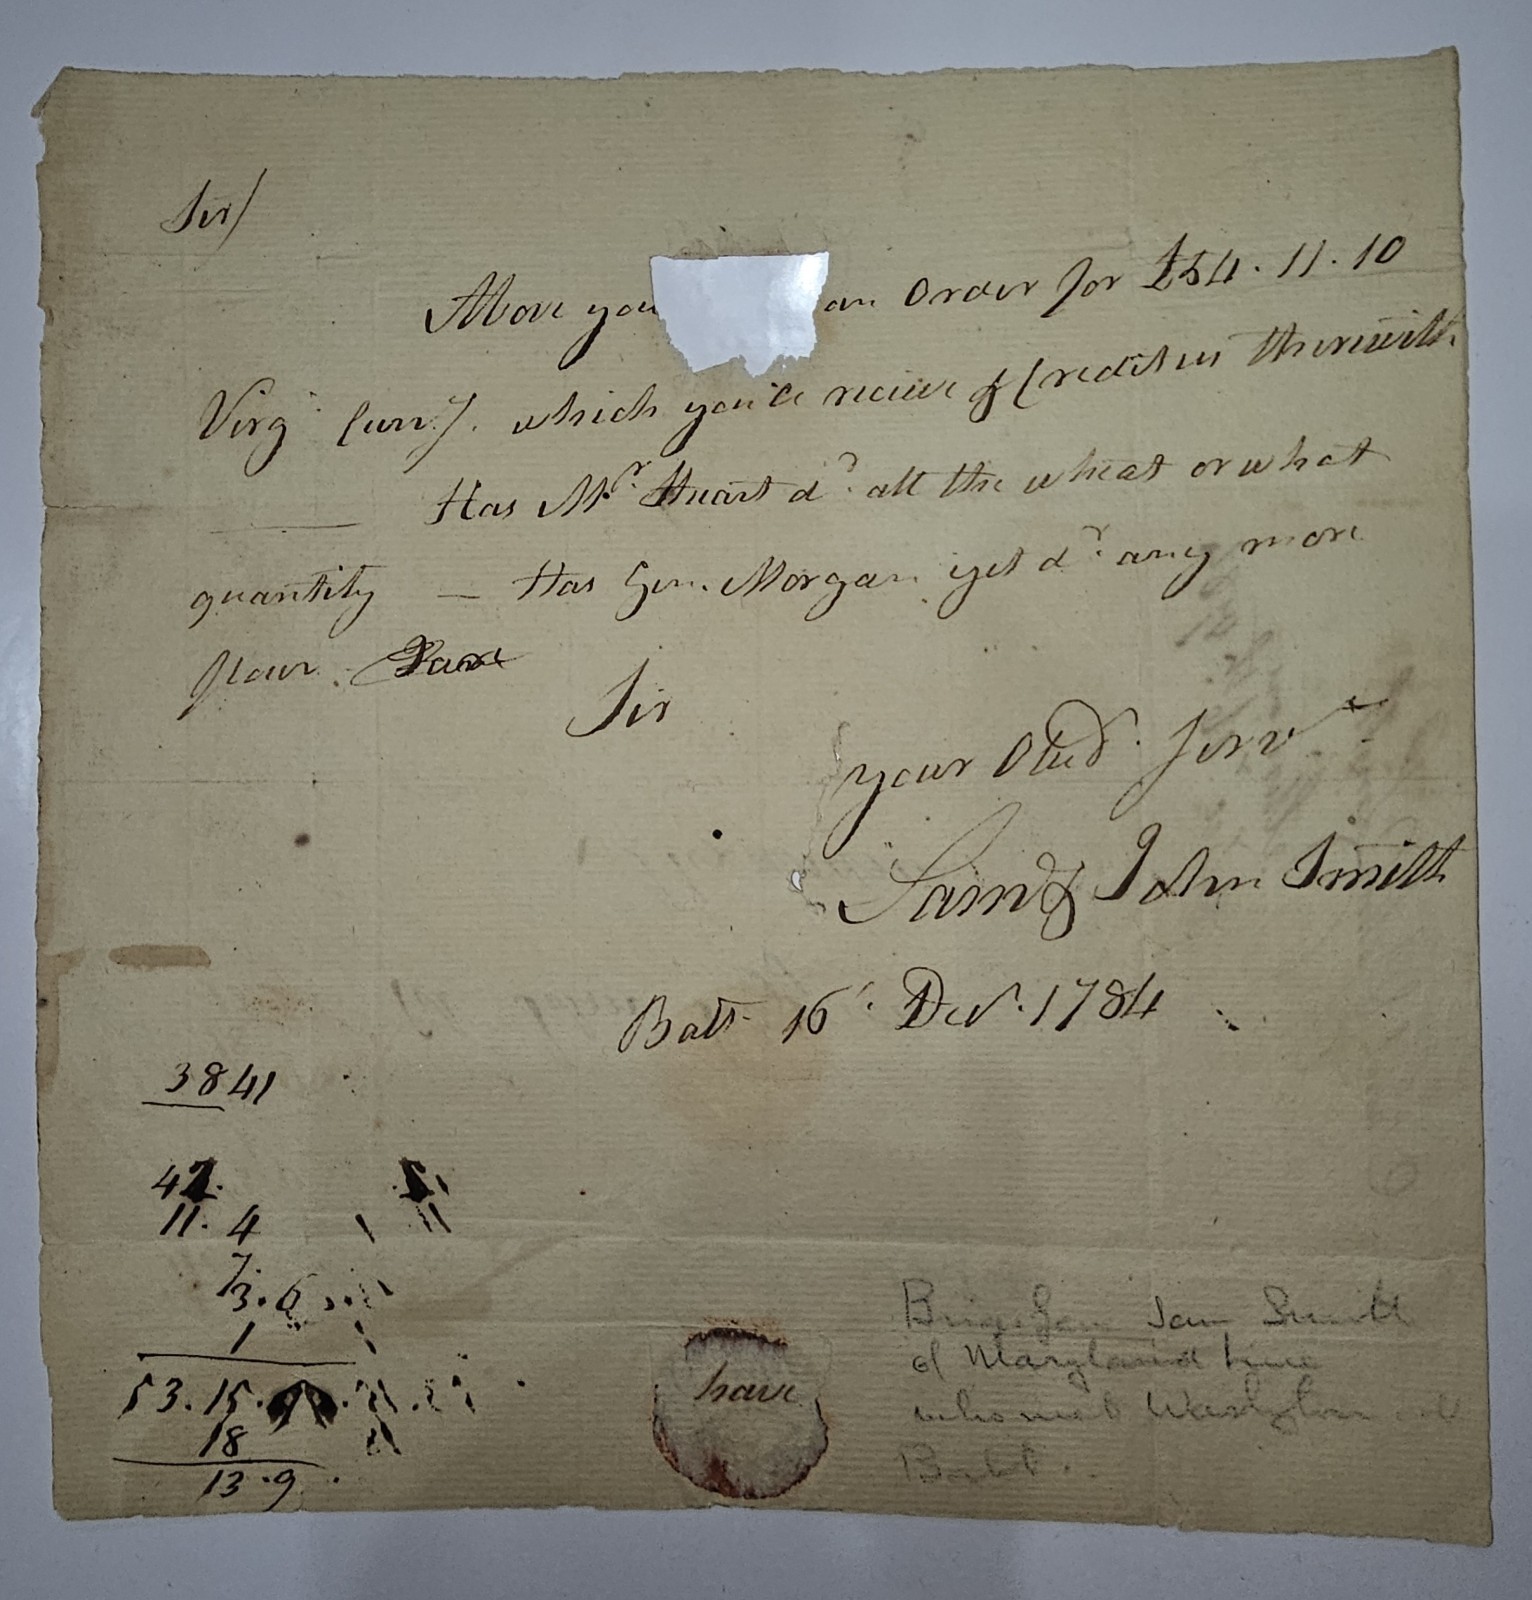 Sir/
Above you an Order for £54.11.10
Virgᵃ Curry. which you'll recieve & Credit us therewith
Has Mʳ. Heart dᵈ. all the wheat or what
quantity — Has Gen. Morgan yet dᵈ. any more
flour.
Sir
your Obedᵗ. Servᵗ
Samˡ & John Smith
Baltᵒ 16 Decʳ. 1784
3841
42.
11. 4
7.
3.6
1
53.15.
18
13.9.
have
Brig Gen Sam Smith
of Maryland line
who met Washington at
Balt.